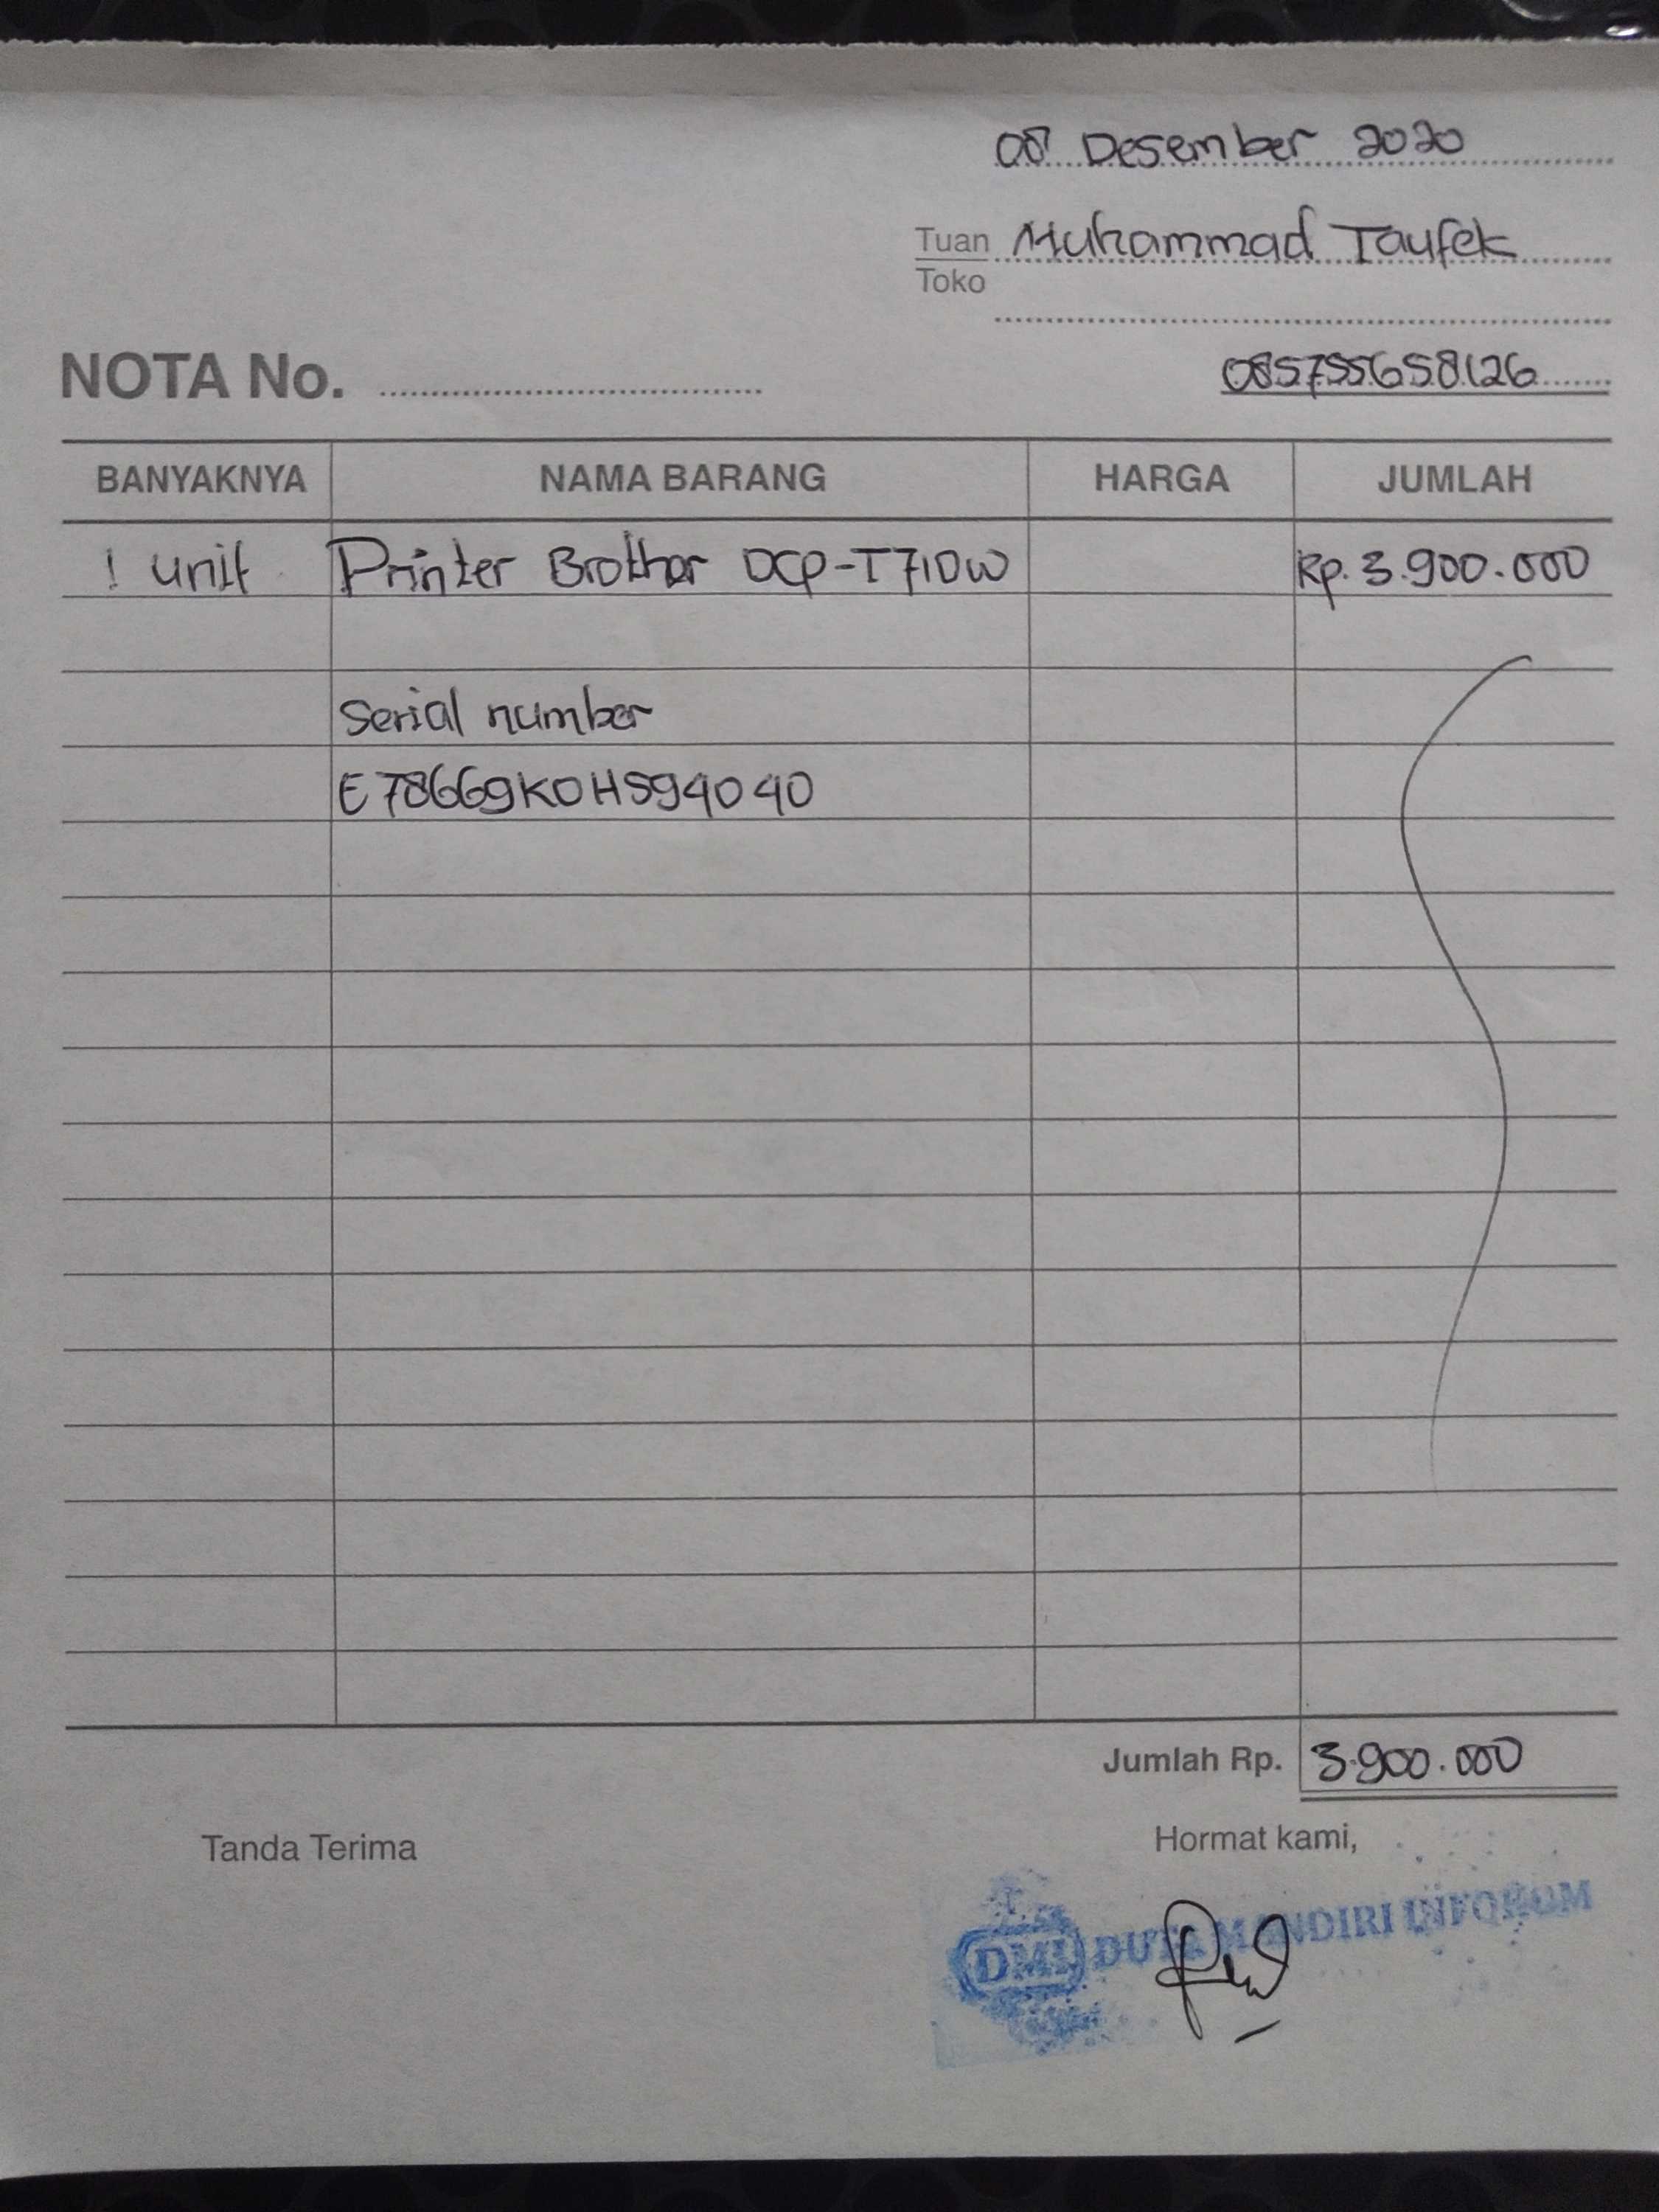 08 Desember 2020
Tuan Muhammad Taufek
Toko
NOTA No.
085755658126
BANYAKNYA NAMA BARANG HARGA JUMLAH
1 unit Printer Brother DCP-T710W Rp. 3.900.000
Serial number
E78669K0H594040
Jumlah Rp. 3.900.000
Tanda Terima
Hormat kami,
DMI DUTA MANDIRI INFOKOM